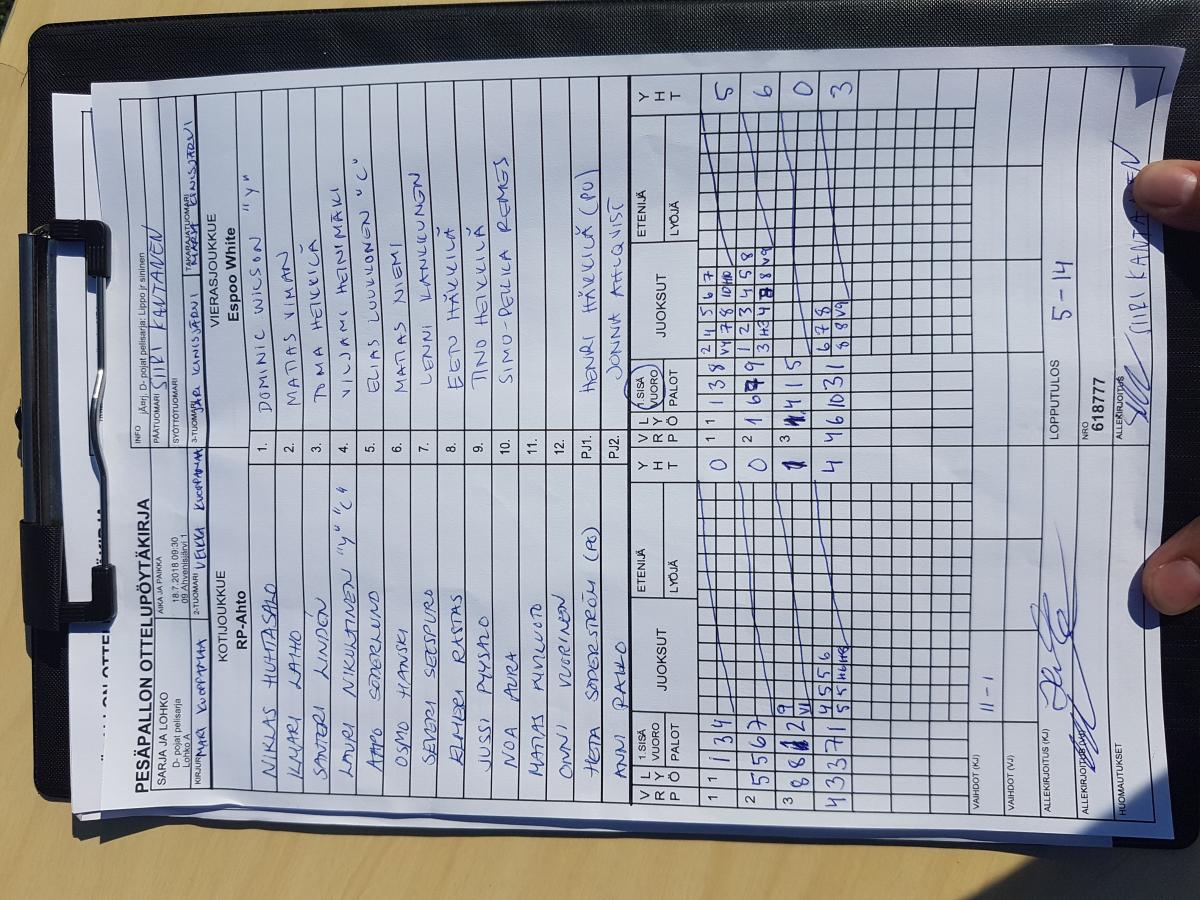 PESÄPALLON OTTELUPÖYTÄKIRJA
INFO jÄrrj. D- pojat pelisarja: Lippo jr sininen
SARJA JA LOHKO
D- pojat pelisarja
Lohko A
AIKA JA PAIKKA
18.7.2018 09:30
09 Ahvenisjärvi 1
PÄÄTUOMARI SIIRI KANTANEN
SYÖTTÖTUOMARI
KIRJURI MARI KUOPPAMAA
2-TUOMARI VEIKKA KUOPPAMAA
3-TUOMARI JARI KINISJÄRVI
TAKARAJATUOMARI MARJA KINISJÄRVI
KOTIJOUKKUE
RP-Ahto
VIERASJOUKKUE
Espoo White
NIKLAS HUHTASALO 1. DOMINIC WILSON "Y"
ILMARI LAIHO 2. MATIAS VIMAN
SANTERI LINDÉN 3. TUMA HEIKKILÄ
LAURI NIKULTINEN "Y" "C" 4. VILJAMI HEINIMÄKI
AAPO SÖDERLUND 5. ELIAS LUUKKONEN "C"
OSMO HANSKI 6. MATIAS NIEMI
SEVERI SEESPURO 7. LENNI KANKKUNEN
ELMERI RASTAS 8. EETU HÄKKILÄ
JUSSI PYYSALO 9. TINO HEIKKILÄ
NOA AURA 10. SIMO-PEKKA REMES
MATIAS KIVILUOTO 11.
ONNI VUORINEN 12.
HETA SÖDERSTRÖM (PJ) PJ1. HENRI HÄKKILÄ (PJ)
ANNI PALLO PJ2. JONNA AHLQVIST
VRP LYÖ 1.SISÄ VUORO PALOT JUOKSUT ETENIJÄ LYÖJÄ YHT
VRP LYÖ 1.SISÄ VUORO PALOT JUOKSUT ETENIJÄ LYÖJÄ YHT
1 1 1 3 4 0
1 1 1 3 8 2 4 5 6 7 5
V4 7 8 10
2 5 5 6 7 0
2 1 6 7 9 1 2 3 4 5 8 6
3 8 8 2 9 9 1
3 4 1 5 0
4 3 3 7 1 4 5 5 6 4
4 4 6 10 3 1 6 7 8 3
8 8 V9
VAIHDOT (KJ) 11 - 1
VAIHDOT (VJ)
ALLEKIRJOITUS (KJ)
LOPPUTULOS 5 - 14
ALLEKIRJOITUS (VJ)
NRO
618777
HUOMAUTUKSET
ALLEKIRJOITUS SIIRI KANTANEN